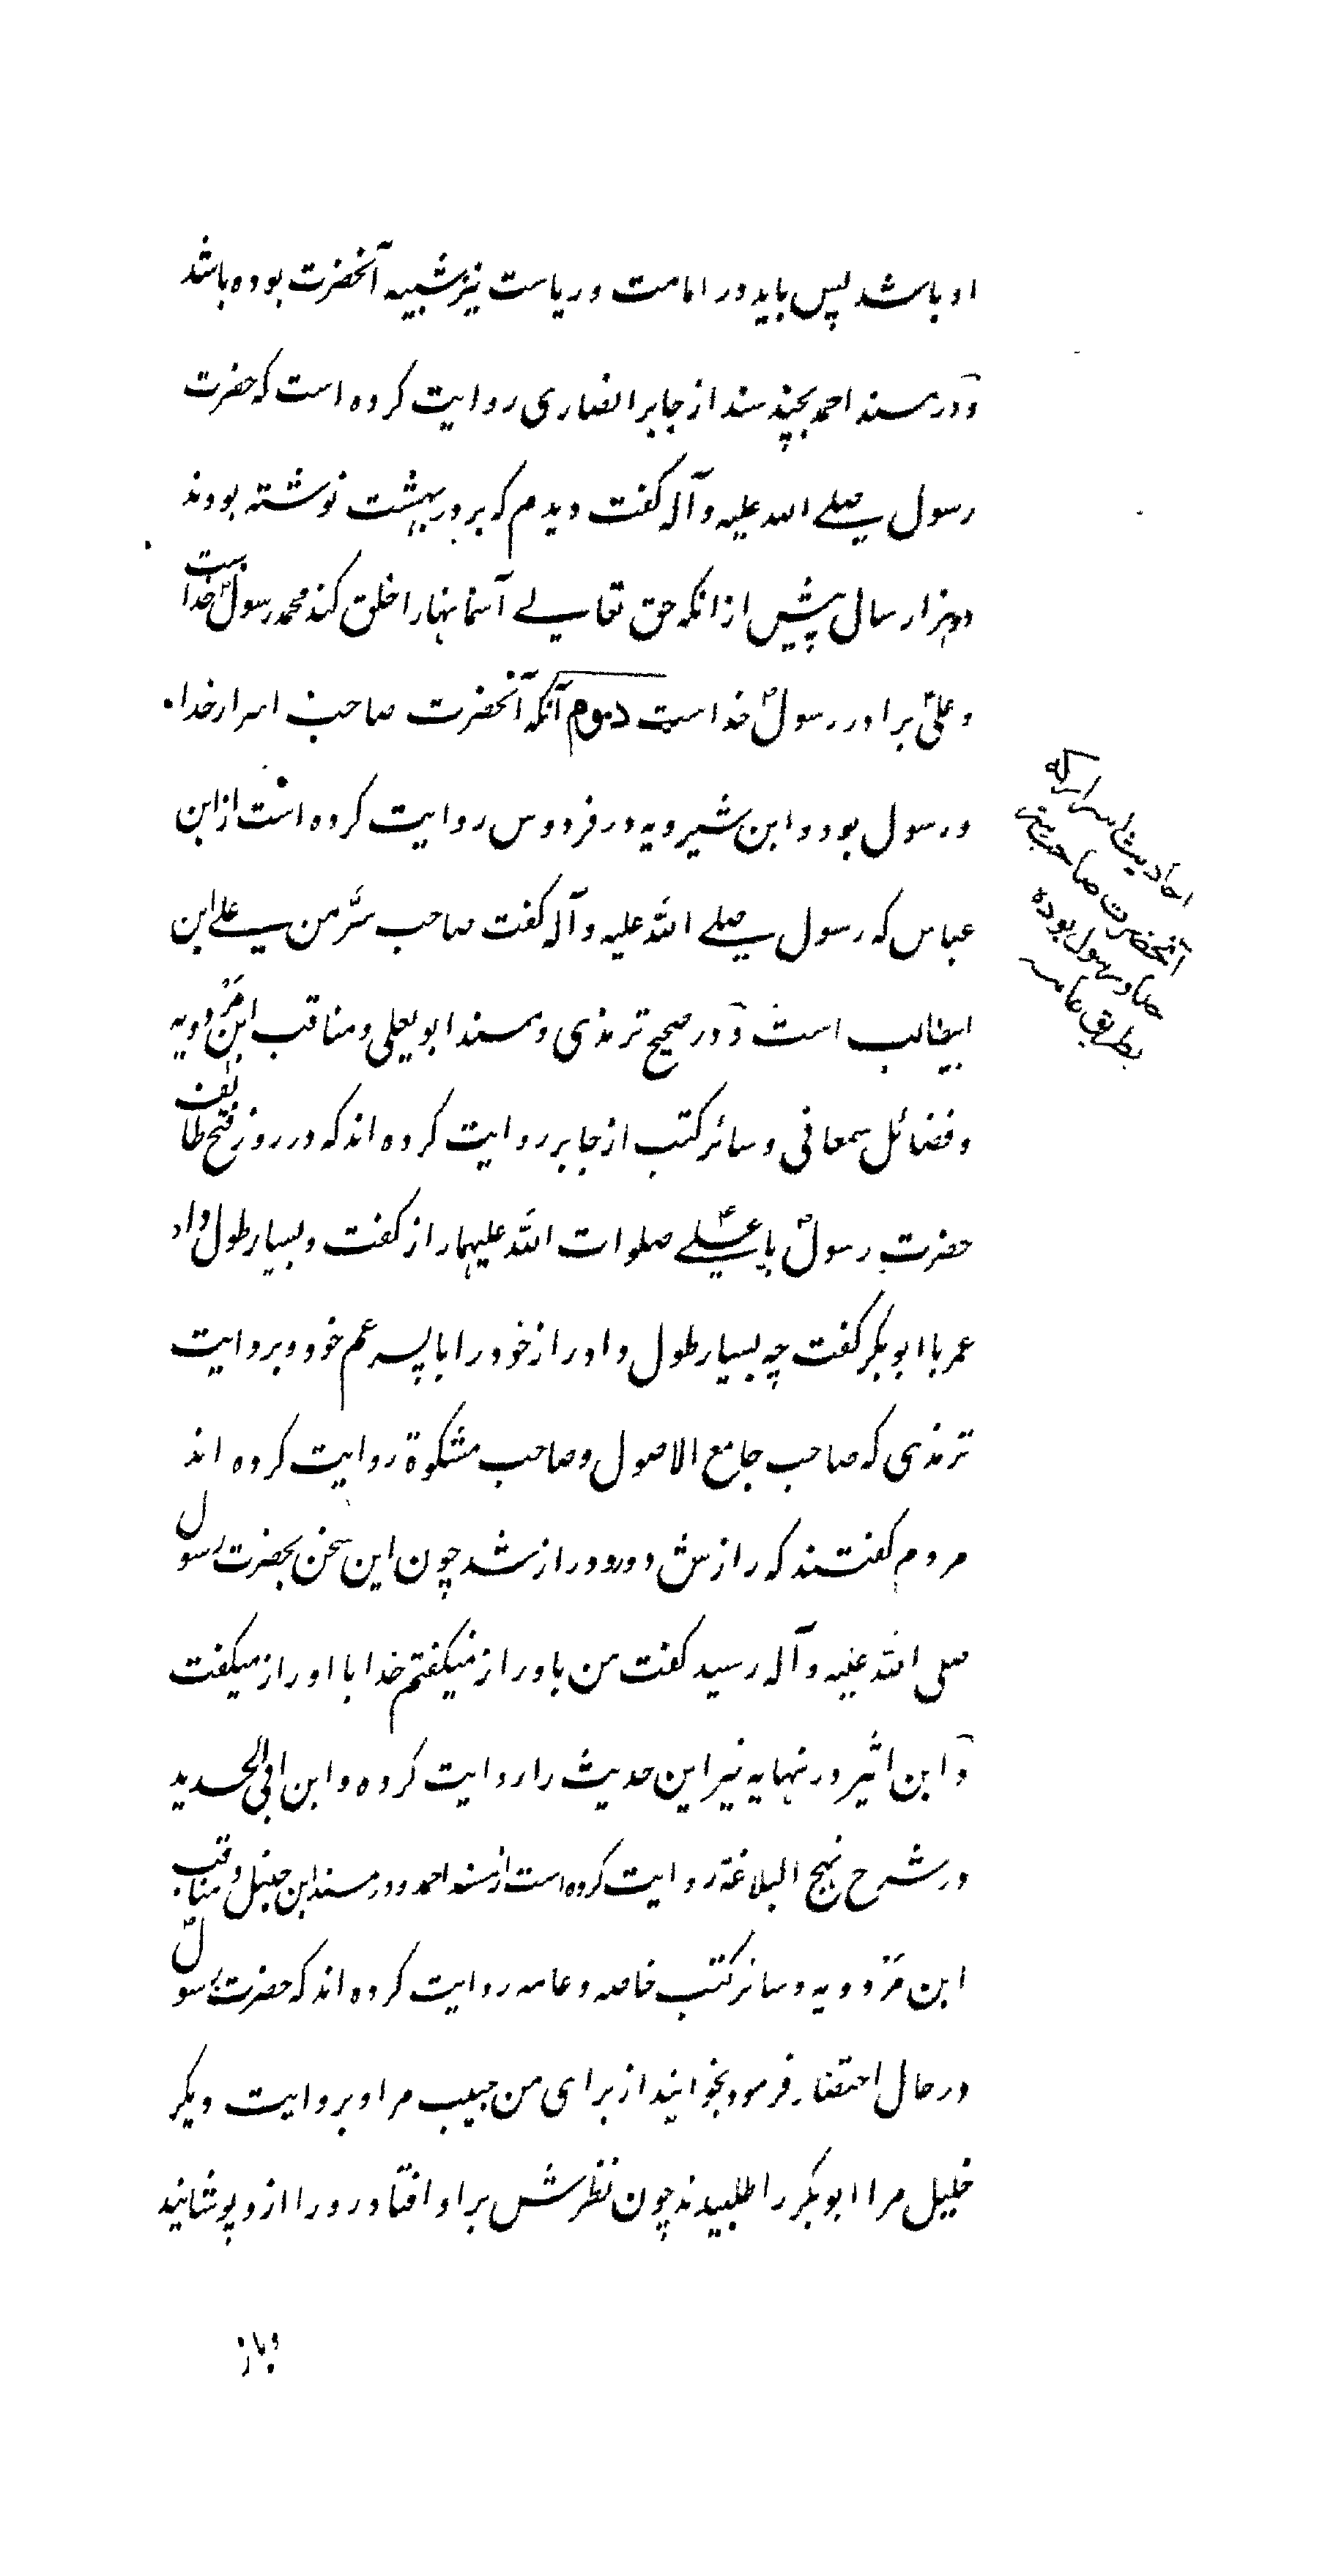 او باشد پس باید در امامت و ریاست نیز شبیه آنحضرت بوده باشد
و در مسند احمد بچند سند از جابر انصاری روایت کرده است که حضرت
رسول صلے الله علیه و آله گفت دیدم که بر در بهشت نوشته بودند
دو هزار سال پیش از انکه حق تعالے آسمانها را خلق کند محمد رسول خدا است
و علیؑ برادر رسولؐ خداست دیوم آنکه آنحضرت صاحب اسرار خدا
و رسول بود و ابن شیرویه در فردوس روایت کرده است از ابن
عباس که رسول صلے اللّه علیه و آله گفت صاحب سّر من علے ابن
ابیطالب است و در صحیح ترمذی و مسند ابو یعلی و مناقب ابن مَرْدویه
و فضائل سمعانی و سائر کتب از جابر روایت کرده اند که در روز فتح طائف
حضرت رسولؐ با علےؑ صلوات اللّه علیهما راز گفت و بسیار طول داد
عمر با ابو بکر گفت چه بسیار طول داد راز خود را با پسر عم خود و بروایت
ترمذی که صاحب جامع الاصول و صاحب مشکوة روایت کرده اند
مردم گفتند که رازش دور و دراز شد چون این سخن بحضرت رسول
صلی اللّه علیه و آله رسید گفت من باو راز نمیگفتم خدا با او راز میگفت
و ابن اثیر در نهایه نیز این حدیث را روایت کرده و ابن ابی الحدید
در شرح نهج البلاغة روایت کرده است از مسند احمد و در مسند ابن حنبل و مناقب
ابن مَرْدویه و سائر کتب خاصه و عامه روایت کرده اند که حضرت رسولؐ
در حال احتضار فرمود بخوانید از برای من حبیب مرا و بروایت دیگر
خلیل مرا ابو بکر را طلبیدند چون نظرش بر او افتاد رو را ازو پوشانید
و باز
احادیث اسرار که
آنحضرت صاحب سر
خدا و رسول بوده
بطریق عامه